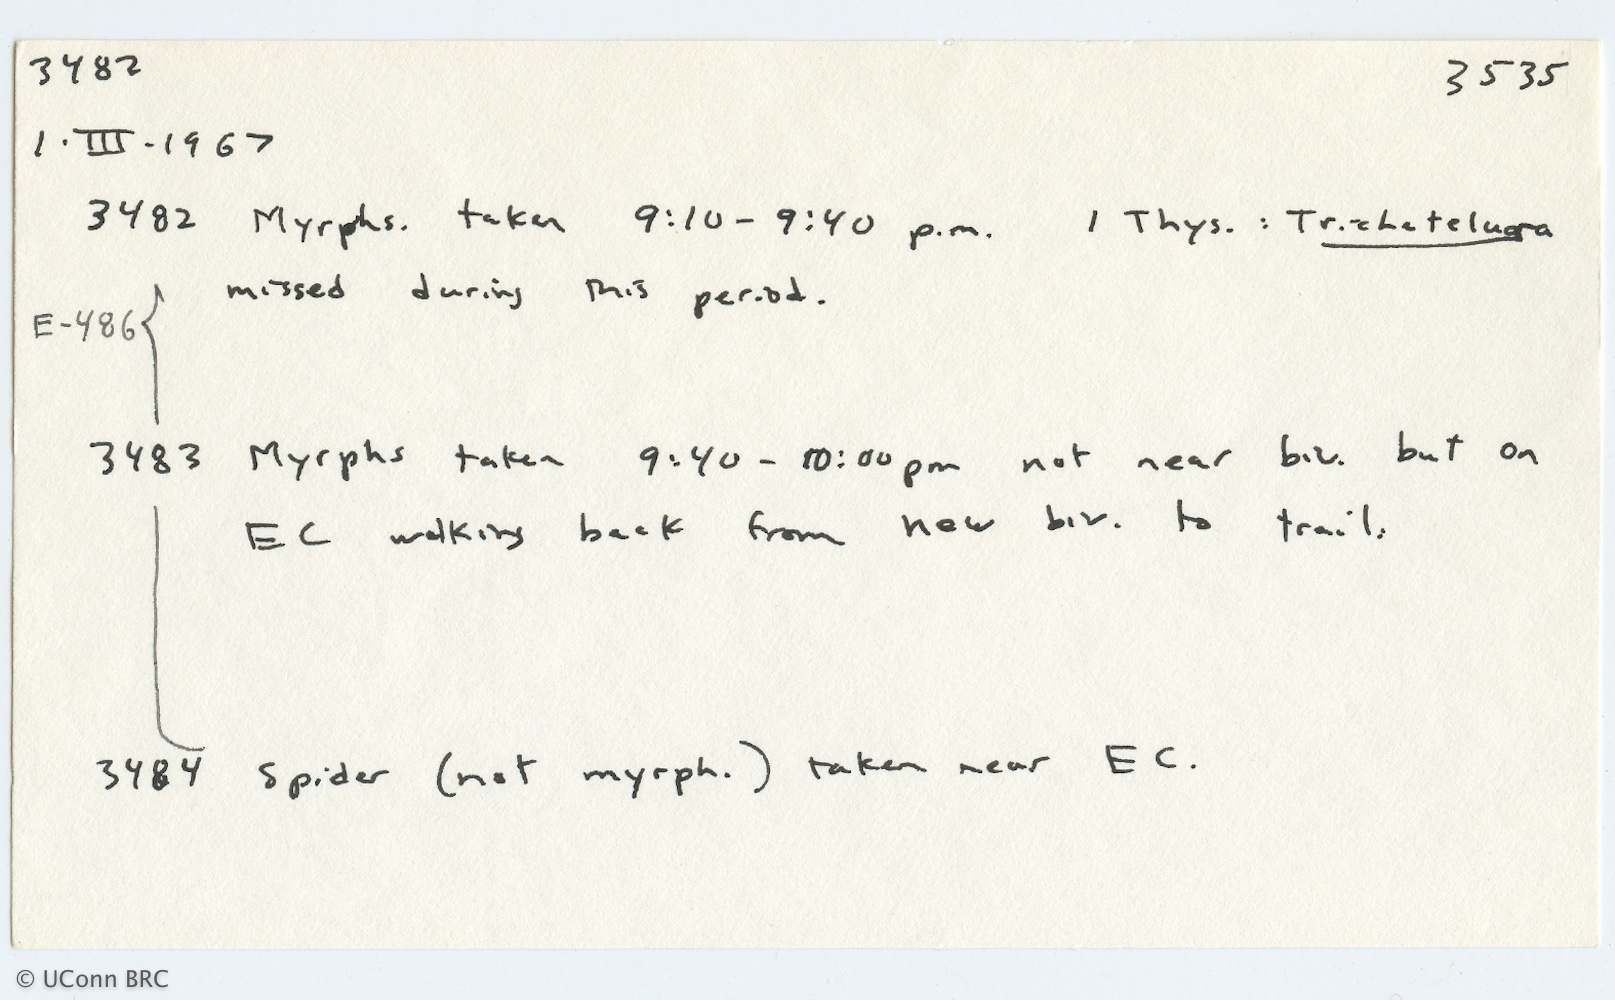 3482 3535
1·III-1967
3482 Myrphs. taken 9:10-9:40 p.m. 1 Thys.: Trichatelura
missed during this period.
E-486
3483 Myrphs taken 9:40-10:00pm not near biv. but on
EC walking back from new biv. to trail.
3484 Spider (not myrph.) taken near EC.
© UConn BRC